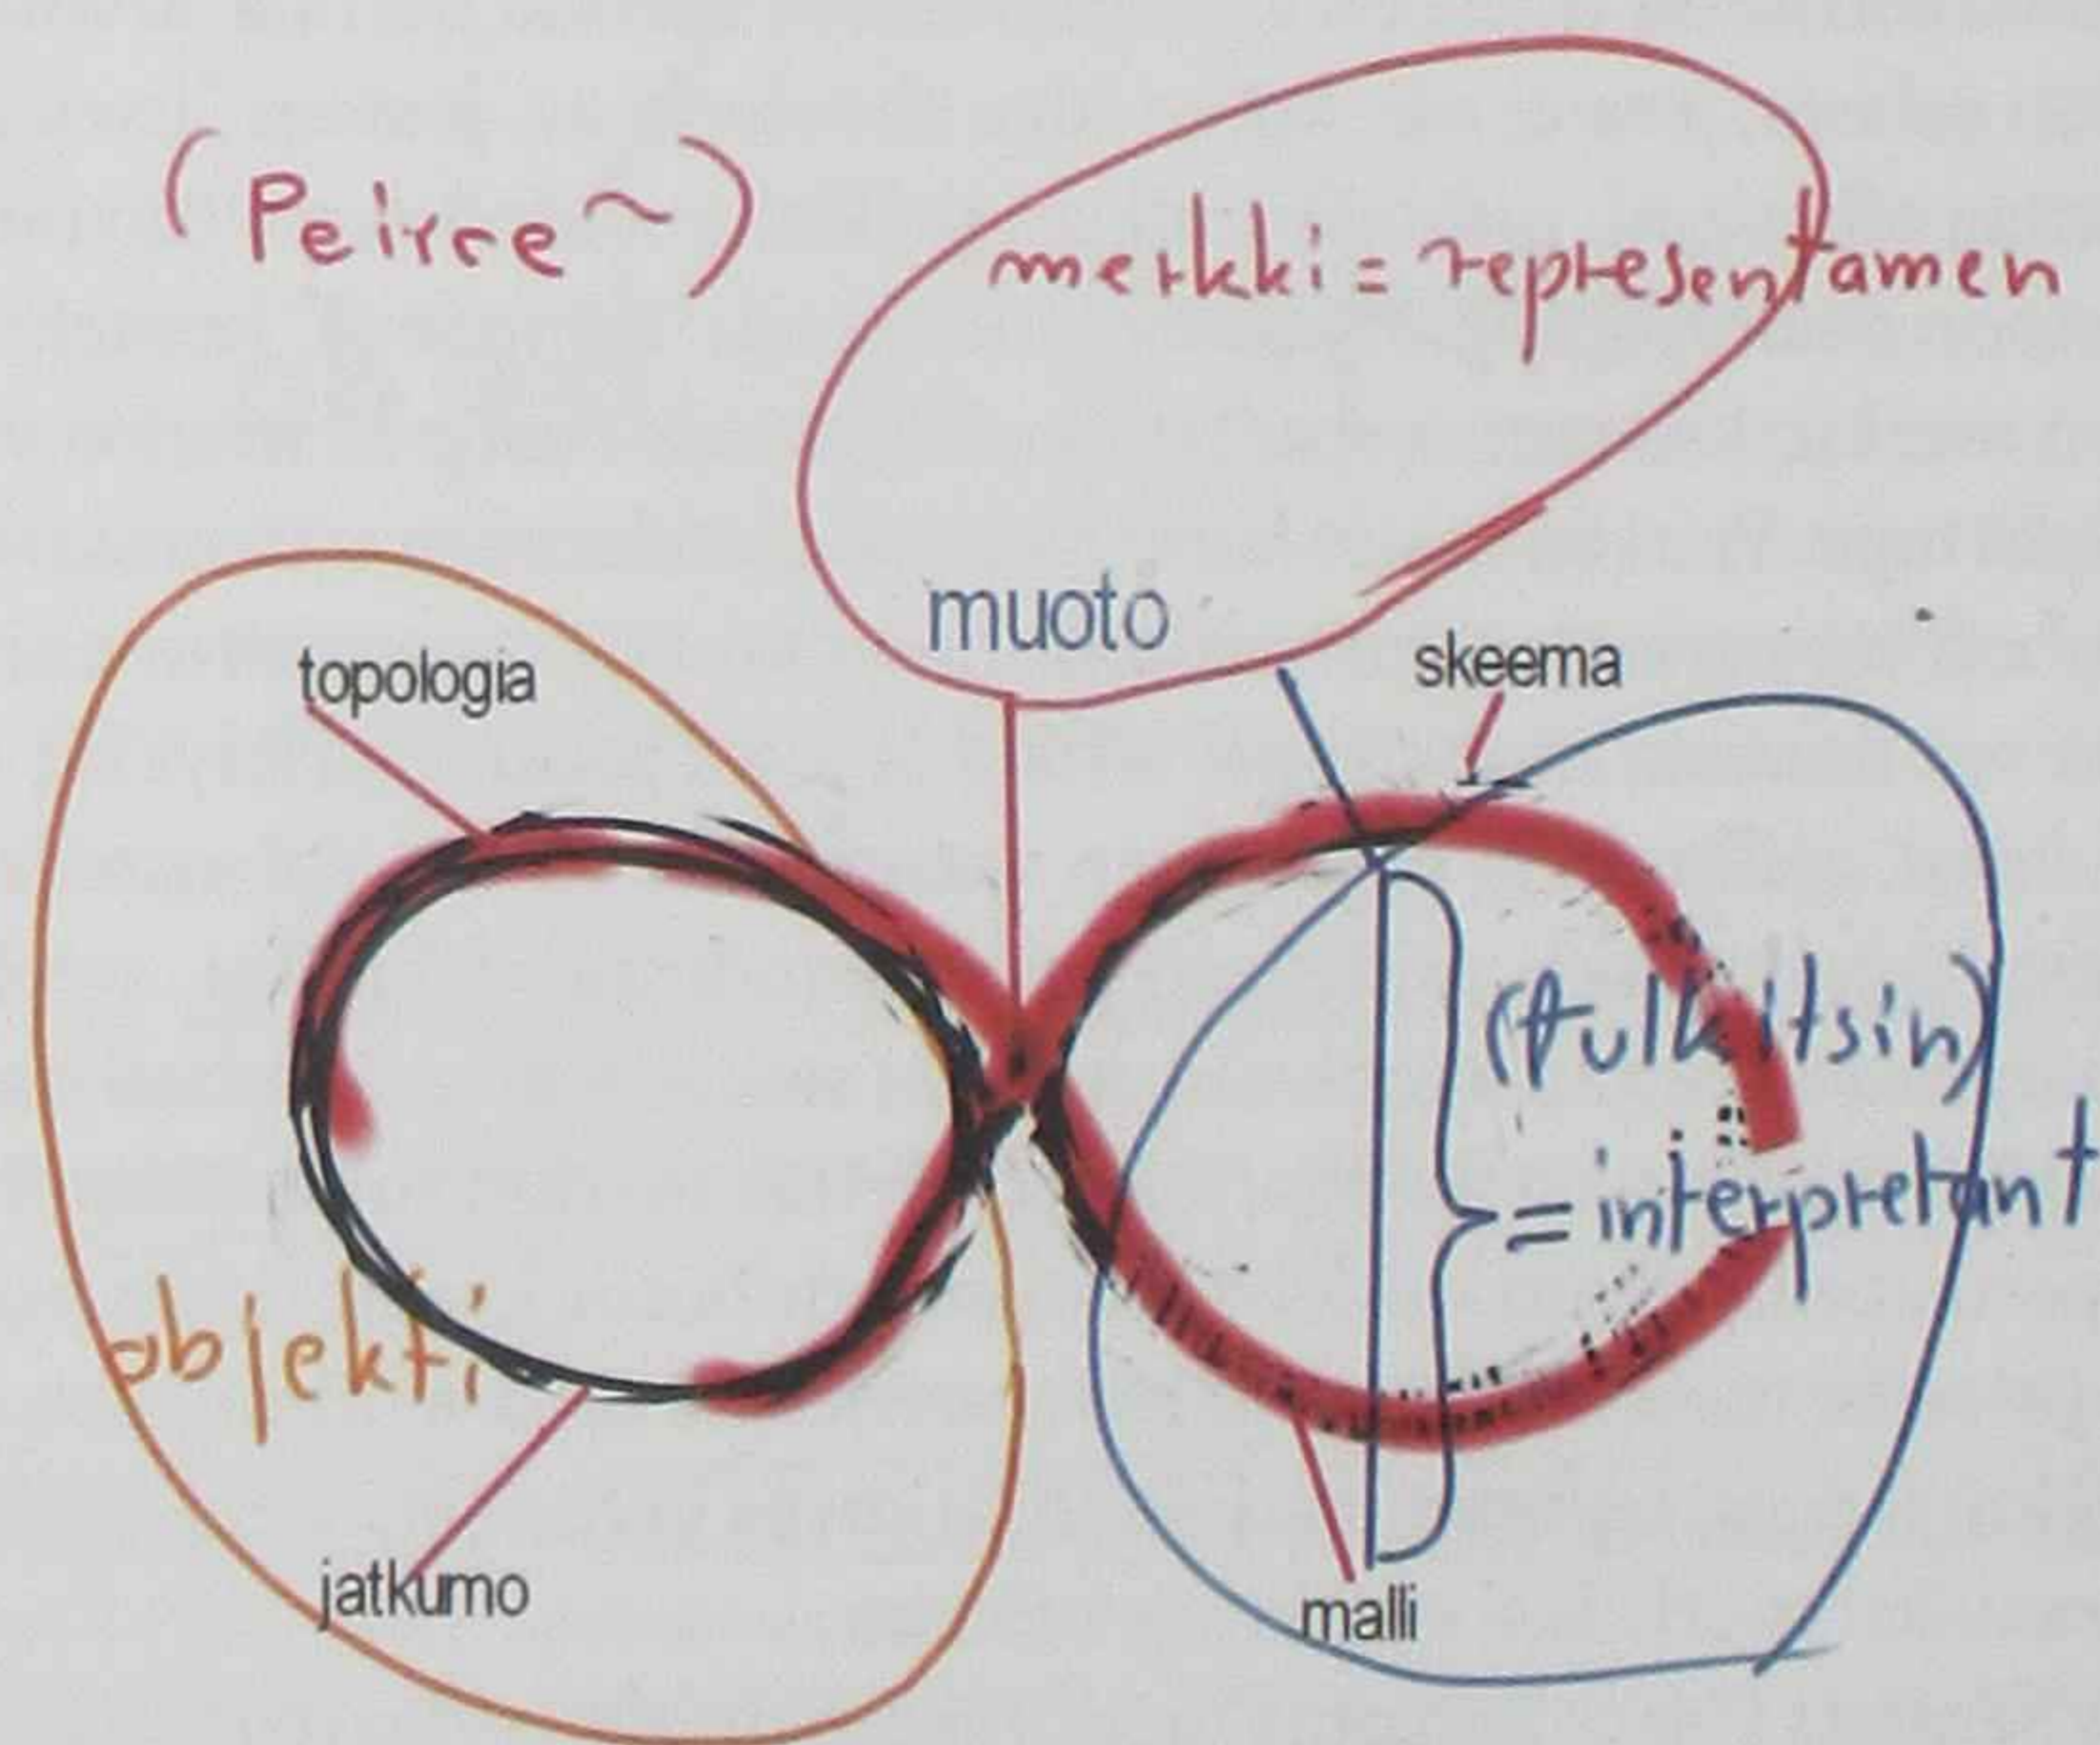 (Peirce ~)
merkki = representamen
muoto
skeema
topologia
(tulkitsin)
= interpretant
objekti
jatkumo
malli